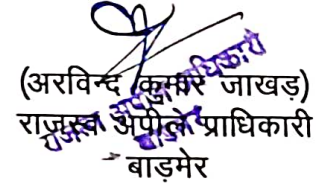 (अरविन्द कुमार जाखड़)
राजस्व अपील प्राधिकारी
बाड़मेर